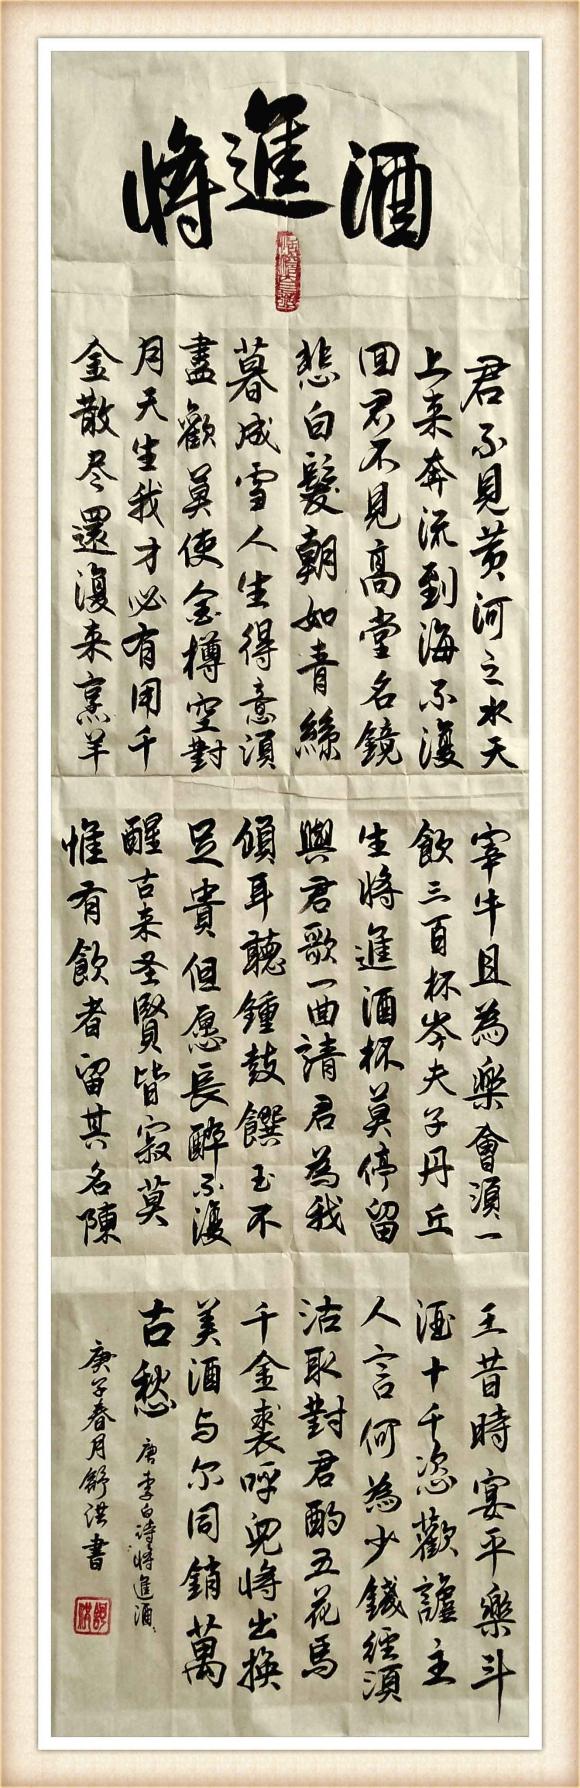 將進酒
君不見黄河之水天
上来奔流到海不復
回君不見高堂名鏡
悲白髮朝如青絲
暮成雪人生得意須
盡歡莫使金樽空對
月天生我才必有用千
金散尽還復来烹羊
宰牛且為樂會須一
飲三百杯岑夫子丹丘
生將進酒杯莫停留
與君歌一曲請君為我
傾耳聽鍾鼓饌玉不
足貴但愿長醉不復
醒古来圣賢皆寂莫
惟有飲者留其名陳
王昔時宴平樂斗
酒十千恣歡謔主
人言何為少錢經須
沽取對君酌五花馬
千金裘呼兒將出換
美酒与尔同銷萬
古愁 唐李白诗將進酒
庚子春月舒洪書